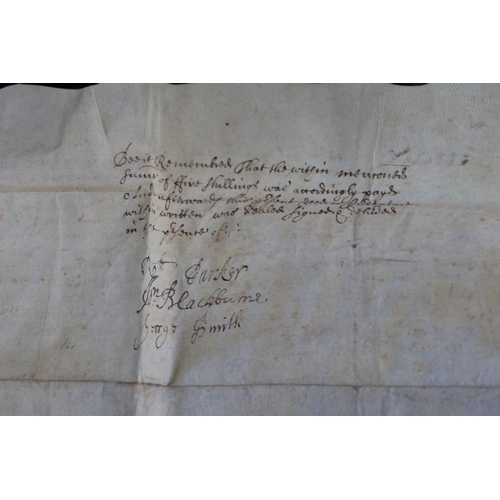 Bee it Remembred That the within menconed
summ of ffive shillings was accordingly payd
And afterwards this psent deed
within written was sealed signed & delived
in the psence of:
Robt Parker
Jn. Blackburne
George Smith